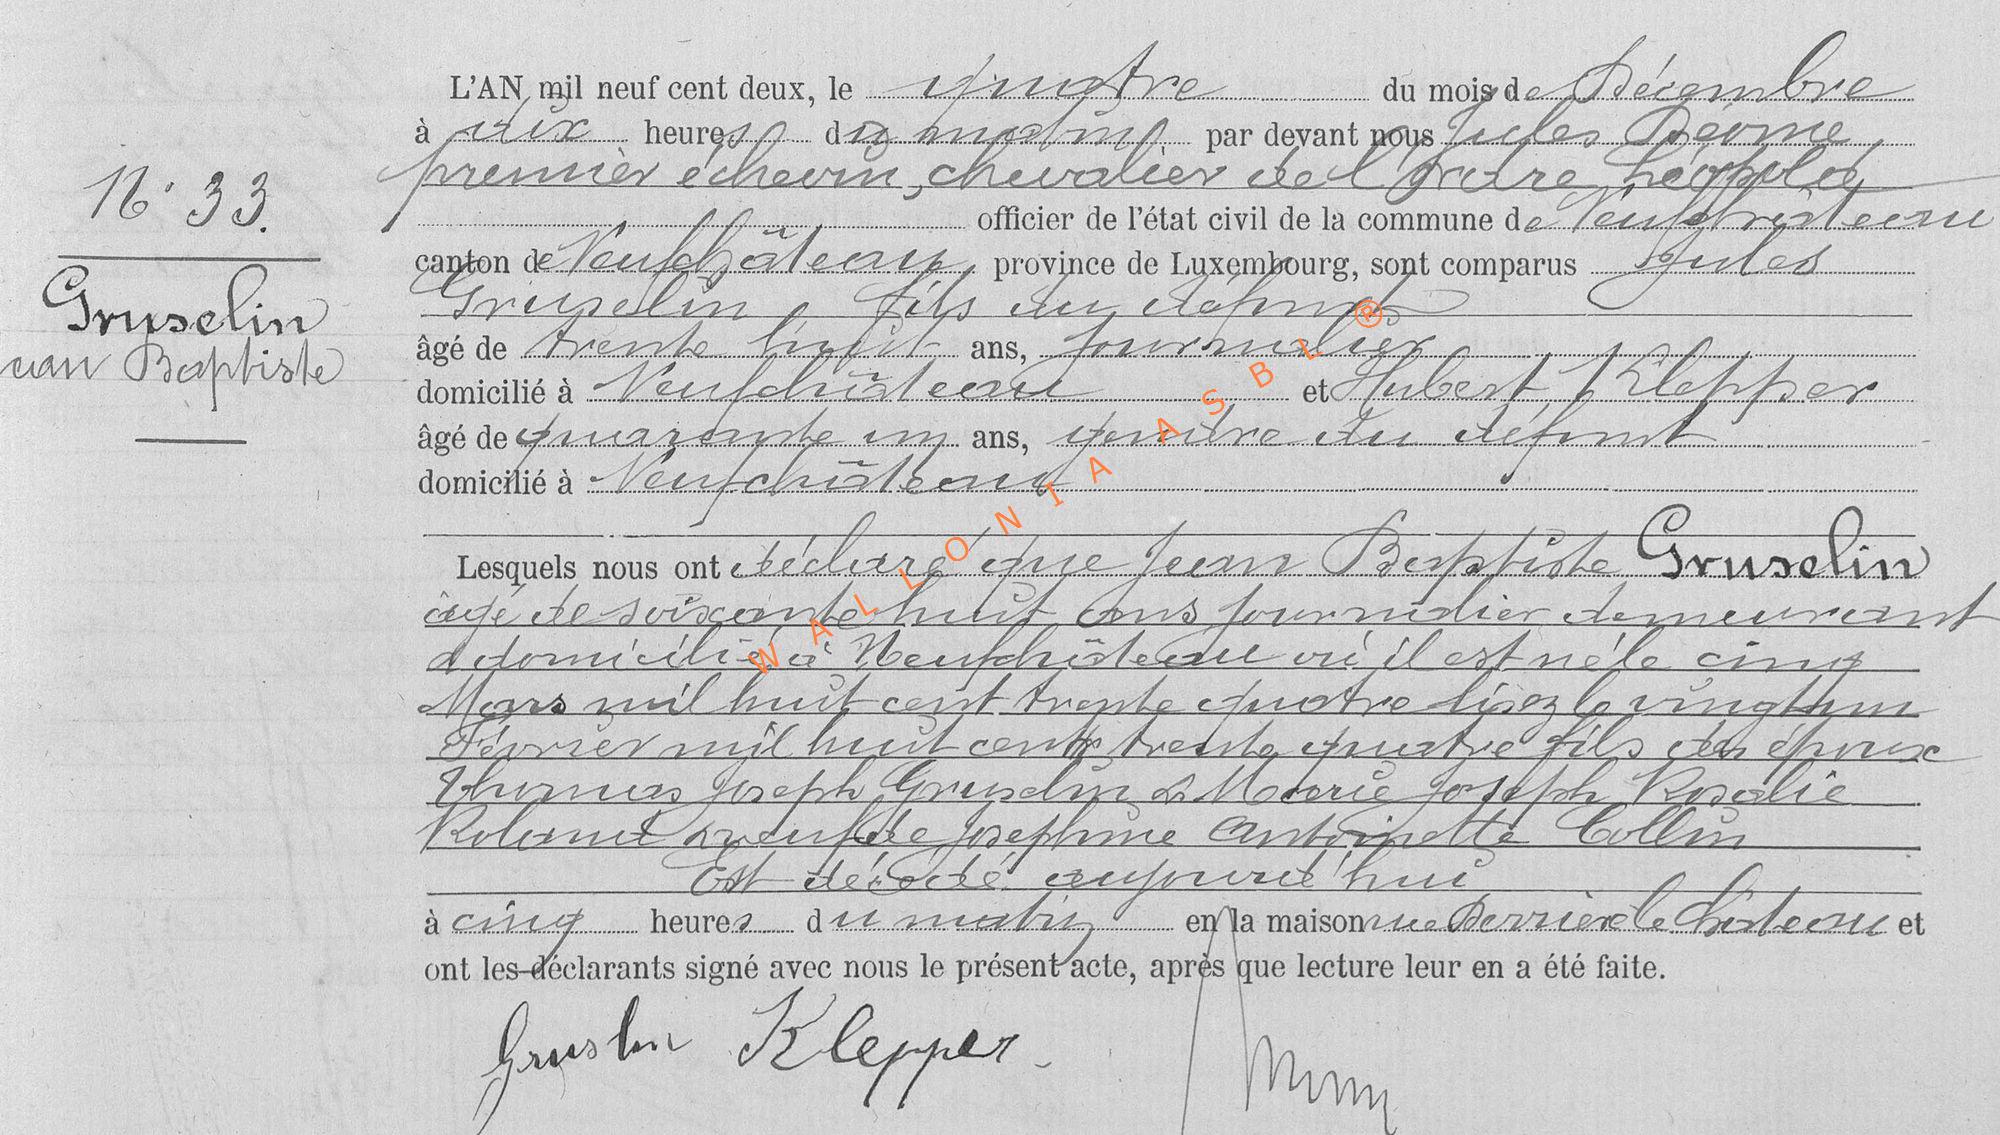 N° 33.
Gruselin
Jean Baptiste
L'AN mil neuf cent deux, le quatre du mois de Décembre
à dix heures du matin par devant nous Jules
premier échevin, chevalier de l'Ordre Léopold
officier de l'état civil de la commune de Neufchâteau
canton de Neufchâteau, province de Luxembourg, sont comparus Jules
Gruselin, fils du défunt
âgé de trente huit ans, journalier
domicilié à Neufchâteau et Hubert Klepper
âgé de quarante un ans, gendre du défunt
domicilié à Neufchâteau
Lesquels nous ont déclaré que Jean Baptiste Gruselin
âgé de soixante huit ans journalier demeurant
& domicilié à Neufchâteau où il est né le cinq
Mars mil huit cent trente quatre lisez le vingt un
Février mil huit cent trente quatre fils des époux
Thomas Joseph Gruselin & Marie Joseph Rosalie
Roland & veuf de Joséphine Antoinette Collin
Est décédé aujourd'hui
à cinq heures du matin en la maison rue Derrière le Château et
ont les déclarants signé avec nous le présent acte, après que lecture leur en a été faite.
Gruslin Klepper
WALLONIA ASBL ®